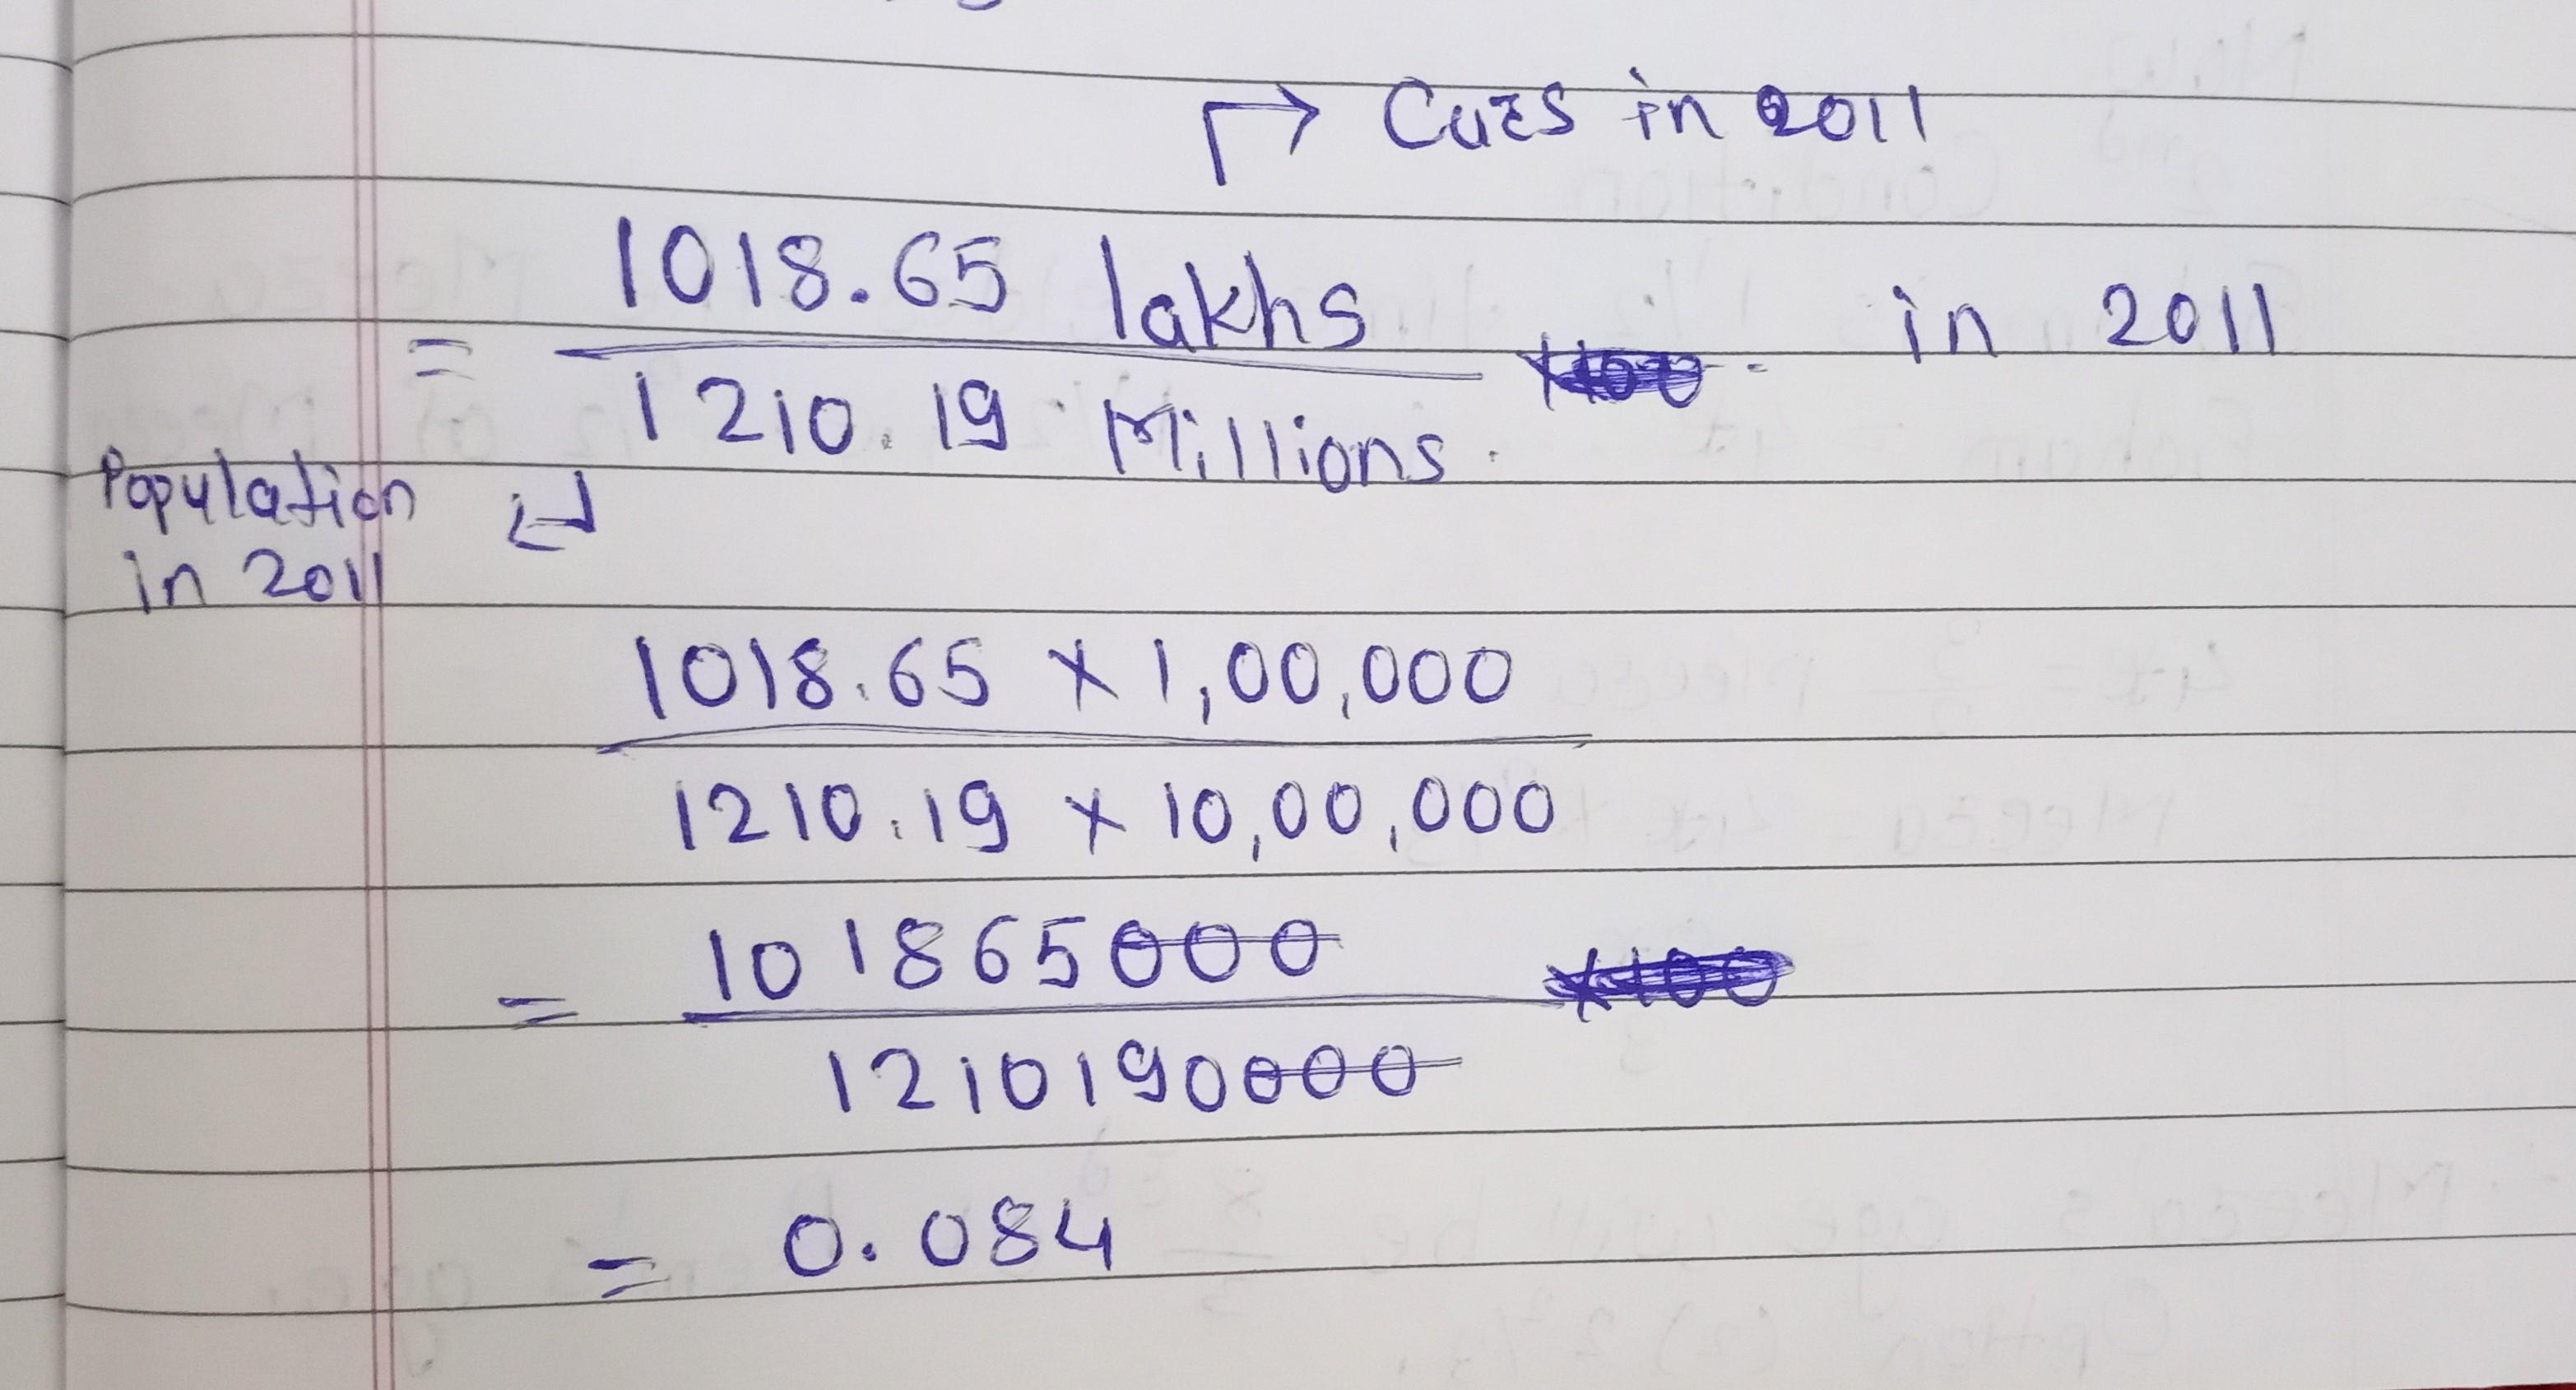 → Cars in 2011
= 1018.65 lakhs / 1210.19 Millions. in 2011
Population in 2011
1018.65 × 1,00,000 / 1210.19 × 10,00,000
= 101865000 / 1210190000
= 0.084